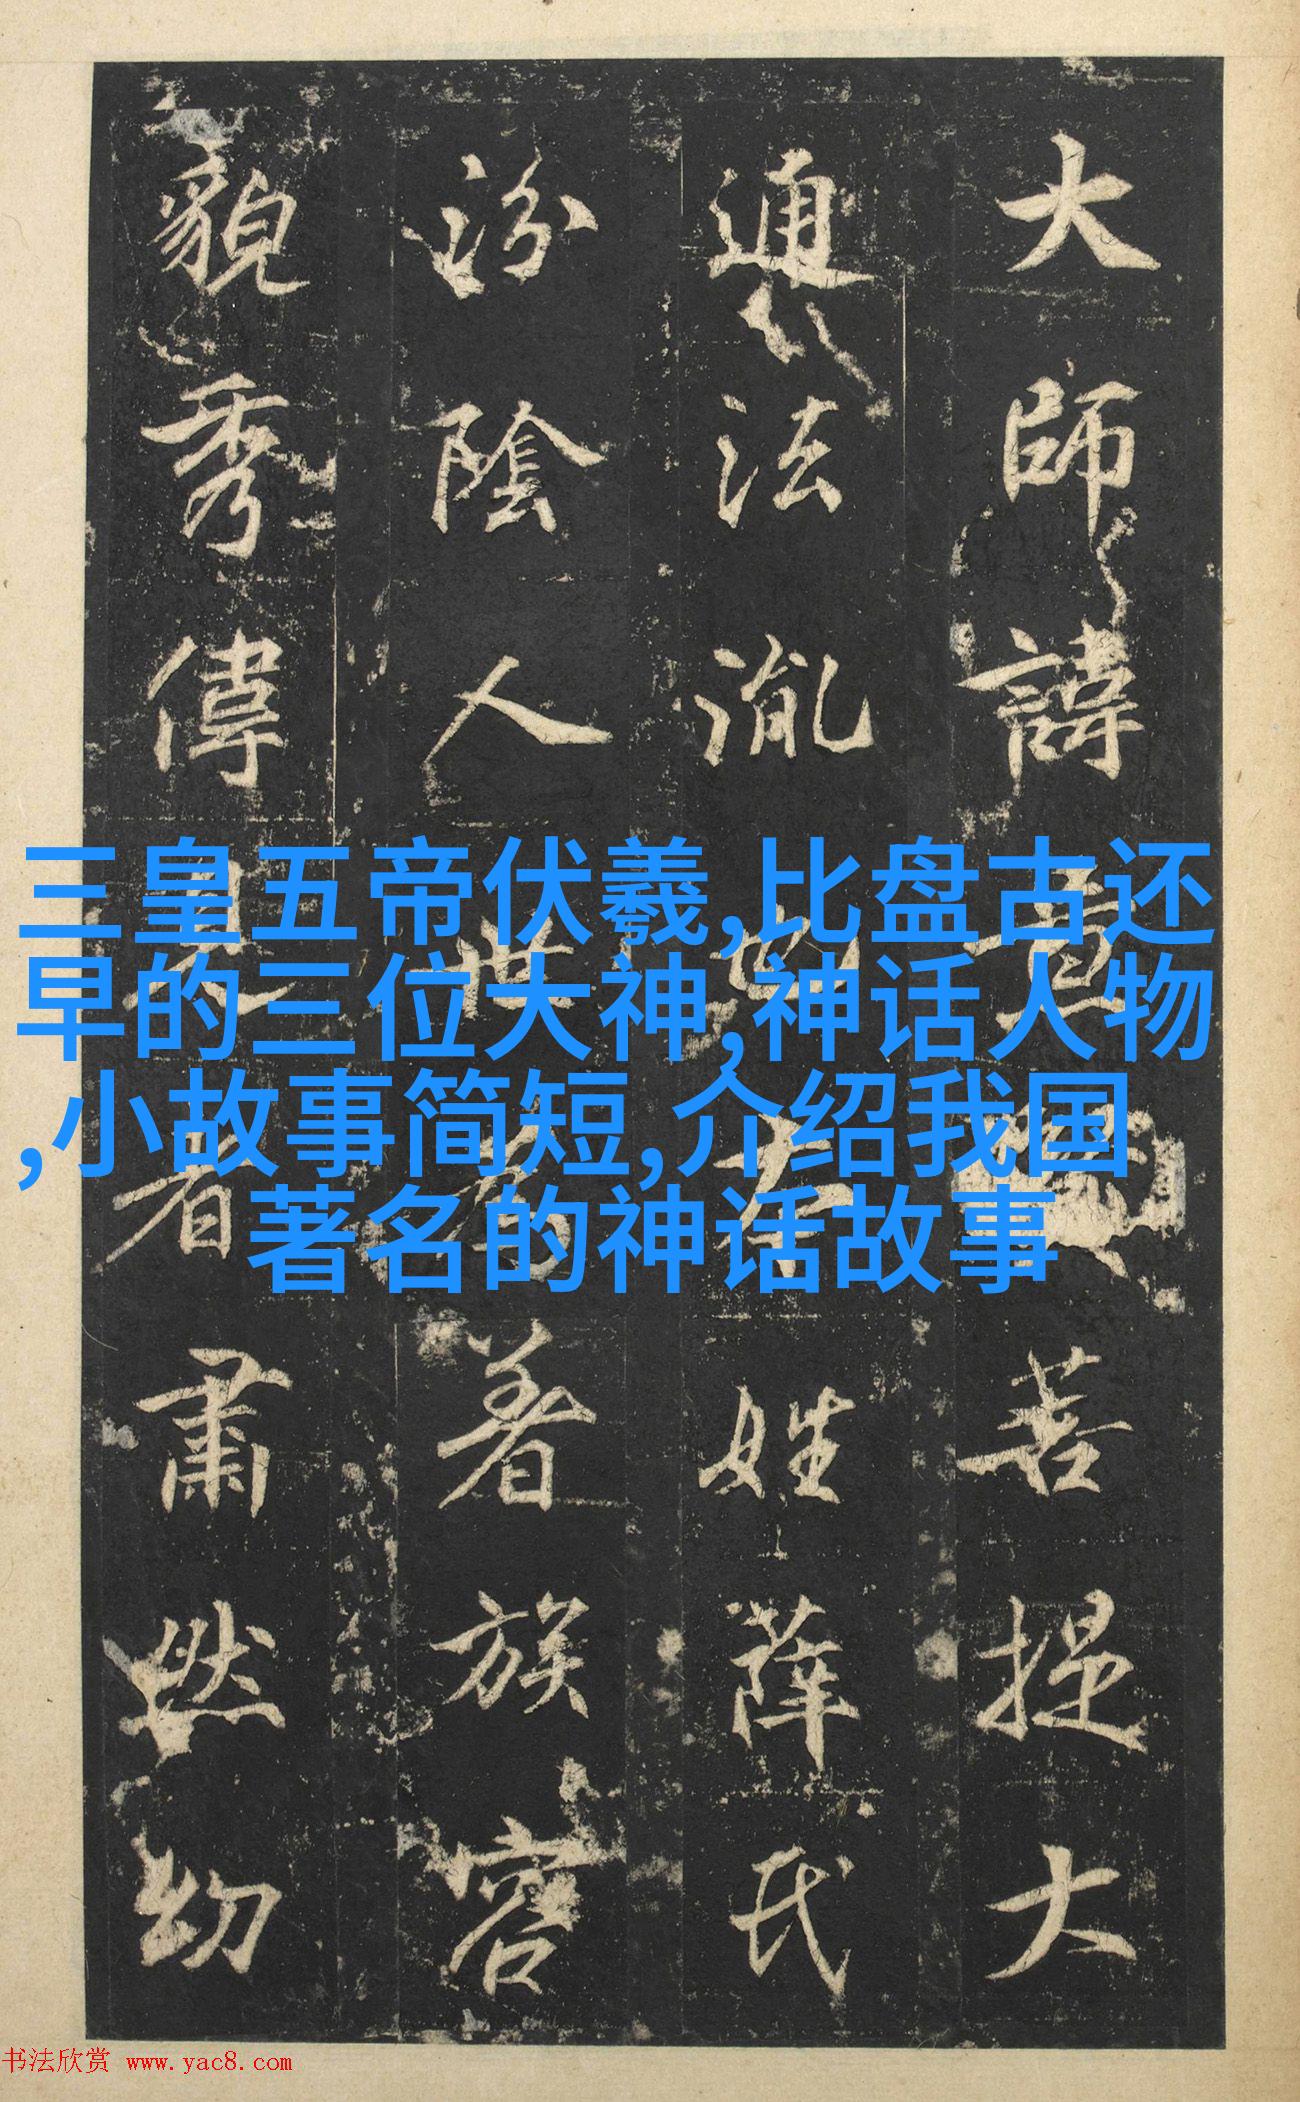 大師諱菩提大
通法胤也本姓薛氏
汾陰人世為著族容
貌秀偉見者肅然幼
三皇五帝伏羲,比盘古还
早的三位大神,神话人物
,小故事简短,介绍我国
著名的神话故事
书法欣赏 www.yac8.com